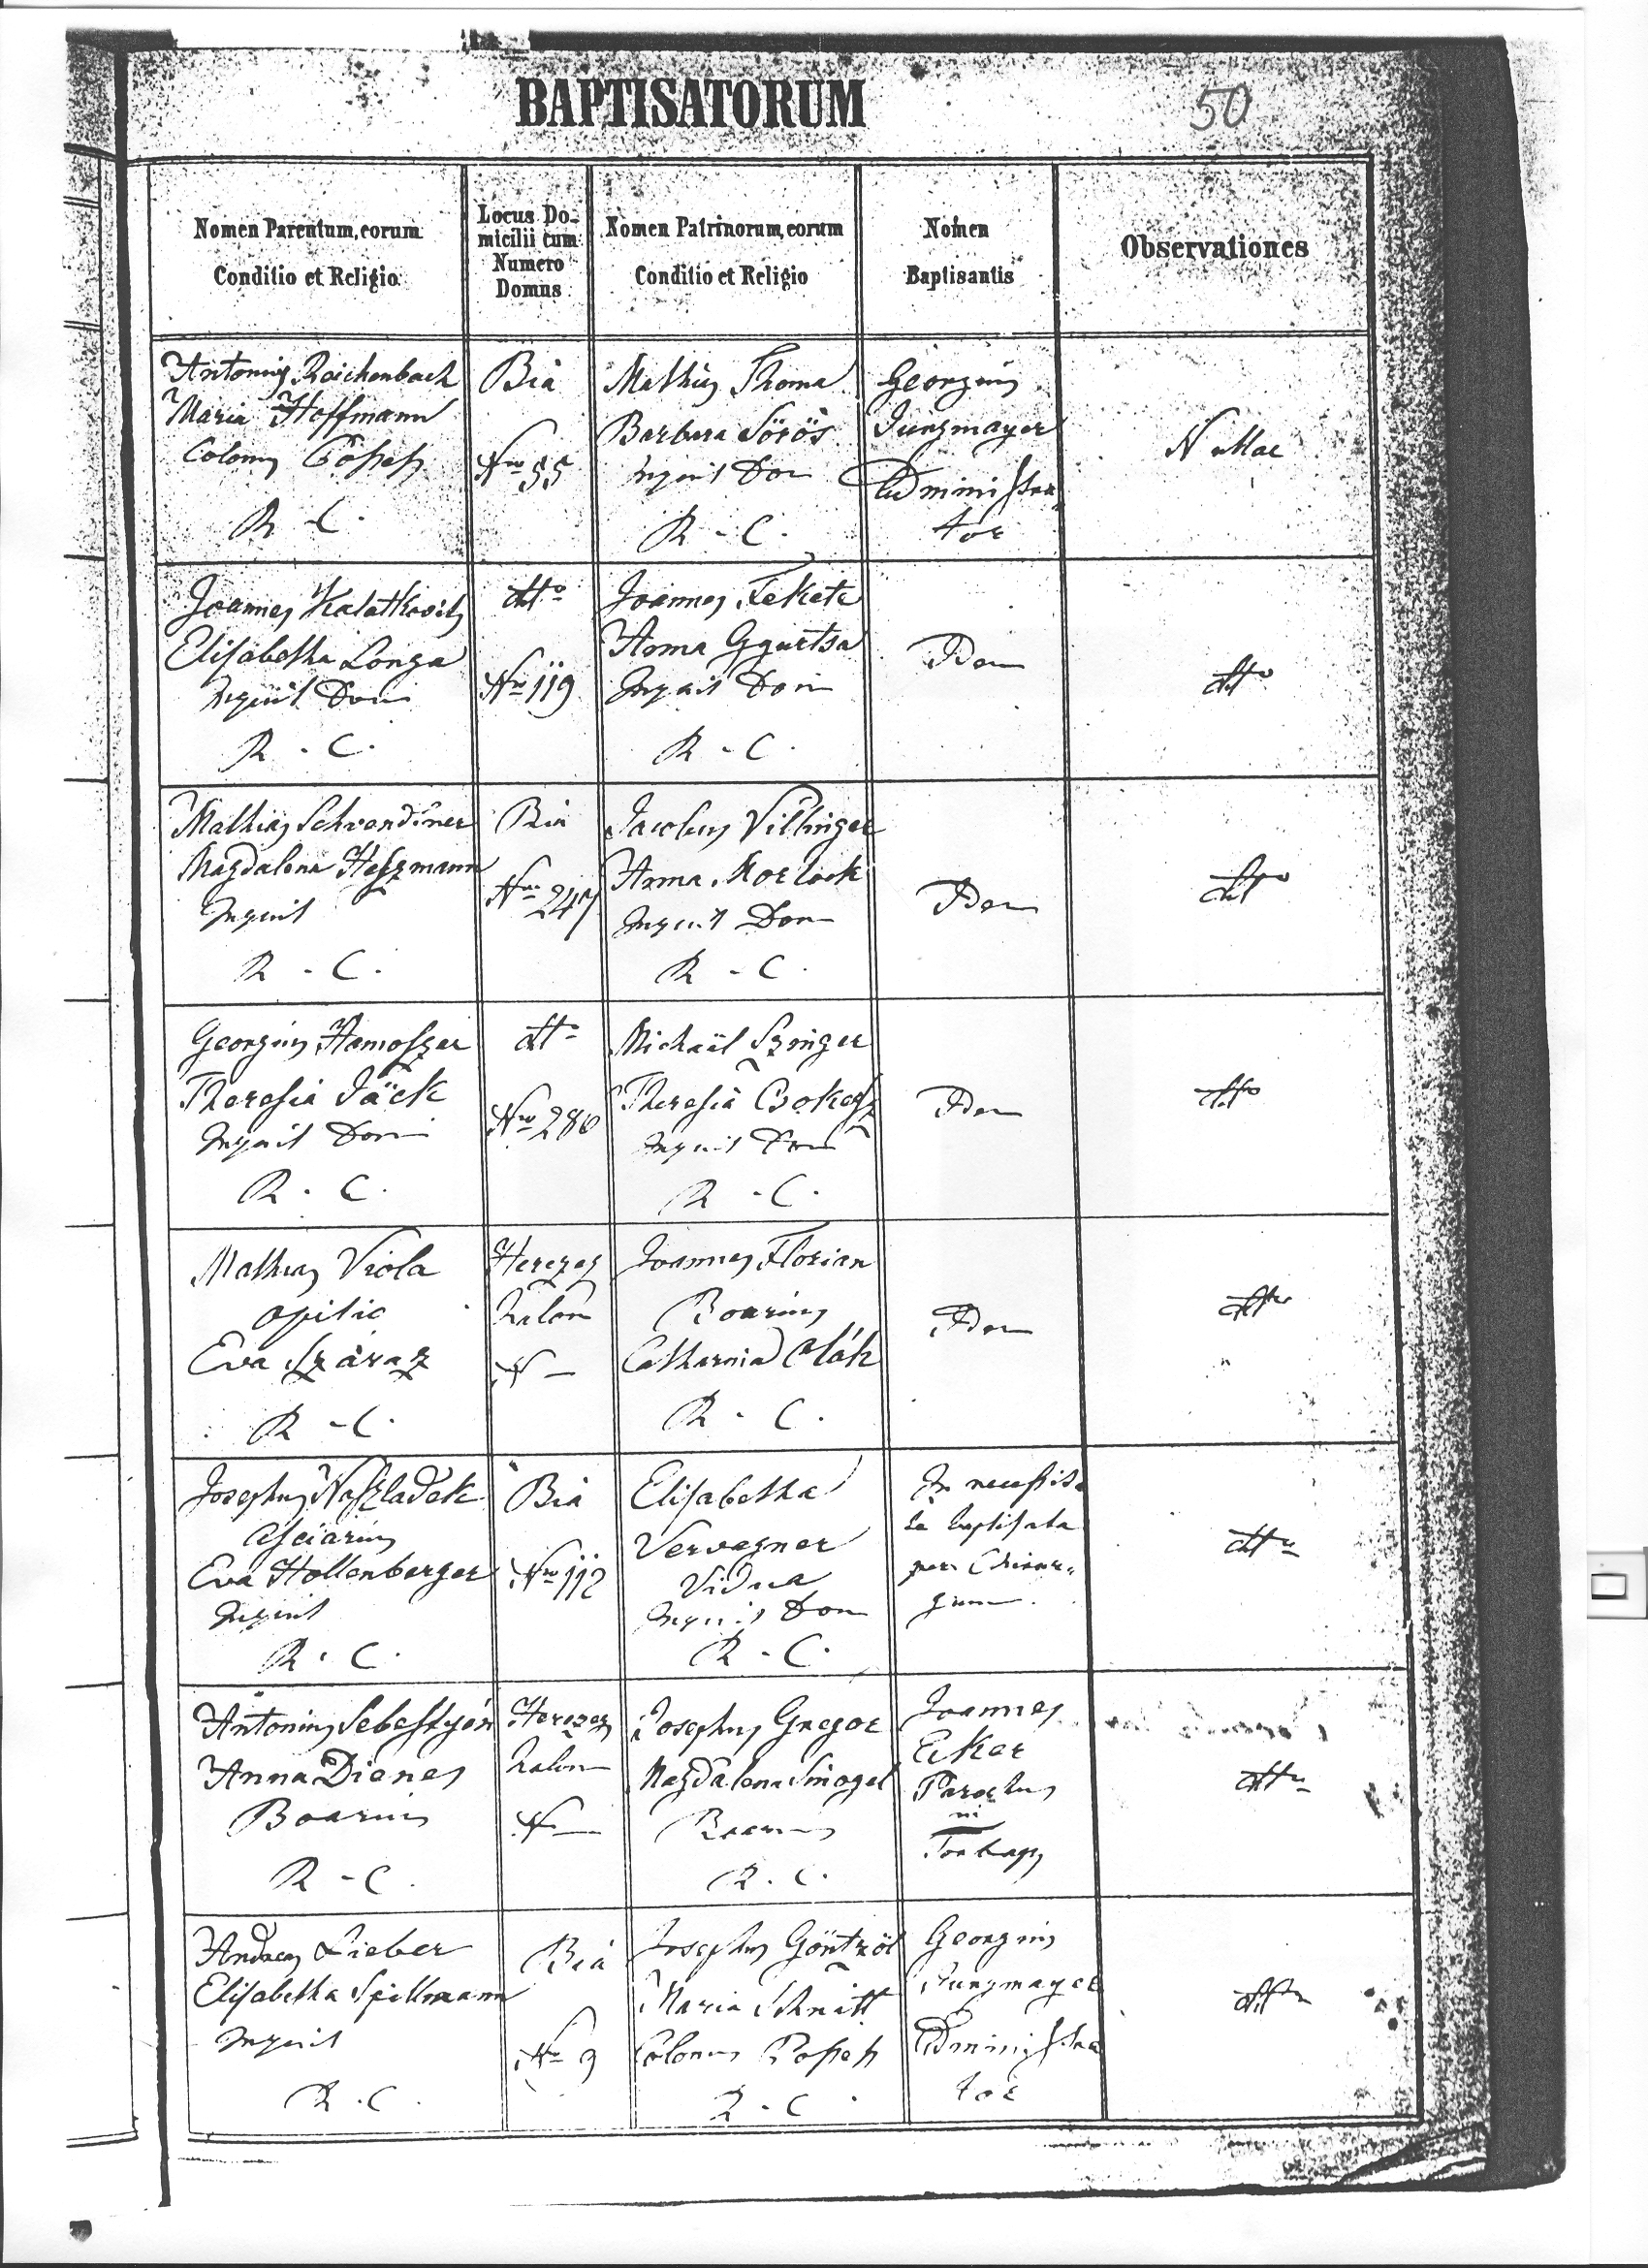 BAPTISATORUM
50
Nomen Parentum, eorum
Conditio et Religio
Locus Do-
micilii cum
Numero
Domus
Nomen Patrinorum, eorum
Conditio et Religio
Nomen
Baptisantis
Observationes
Antonius Reichenbach
Maria Hoffmann
Colonus
R - C.
Bia
Nro 55
Mathias Thoma
Barbara Sörös
Inquil Dom
R - C.
Georgius
Jungmayer
Adminißtra
tor
Nullae
Joannes Kalatkovits
Elisabetha Longa
Inquil Dom
R - C.
dtto
Nro 119
Joannes Fekete
Anna
Inquil Dom
R - C.
Idem
dtto
Mathias Schvendtner
Magdalena Heszmann
Inquil
R - C.
Bia
Nro 247
Jacobus Villinger
Anna Morlok
Inquil Dom
R - C.
Idem
dtto
Georgius Hamoszer
Theresia Jäck
Inquil Dom
R - C.
dtto
Nro 280
Michaël Szinger
Theresia
Inquil Dom
R - C.
Idem
dtto
Mathias Viola
opilio
Eva Száraz
R - C.
Herczeg
halom
N —
Joannes Florian
Boarius
Catharina Oláh
R - C.
Idem
dtto
Josephus Naszladek
Asciarius
Eva Hollenberger
Inquil
R - C.
Bia
Nro 112
Elisabetha
Vervegner
Vidua
Inquil Dom
R - C.
In neceßita
te baptisata
per Chirur-
gum.
dtto
Antonius Sebestyén
Anna Dienes
Boarius
R - C.
Herczeg
halom
N —
Josephus Gregor
Magdalena
Boarius
R. C.
Joannes
Eker
Parochus
in
Torbagy
dtto
Andreas Lieber
Elisabetha Spillmann
Inquil
R. C.
Bia
Nro 9
Josephus Göntzöl
Maria Schnitt
Colonus
R - C
Georgius
Jungmayer
Adminißtra
tor
dtto